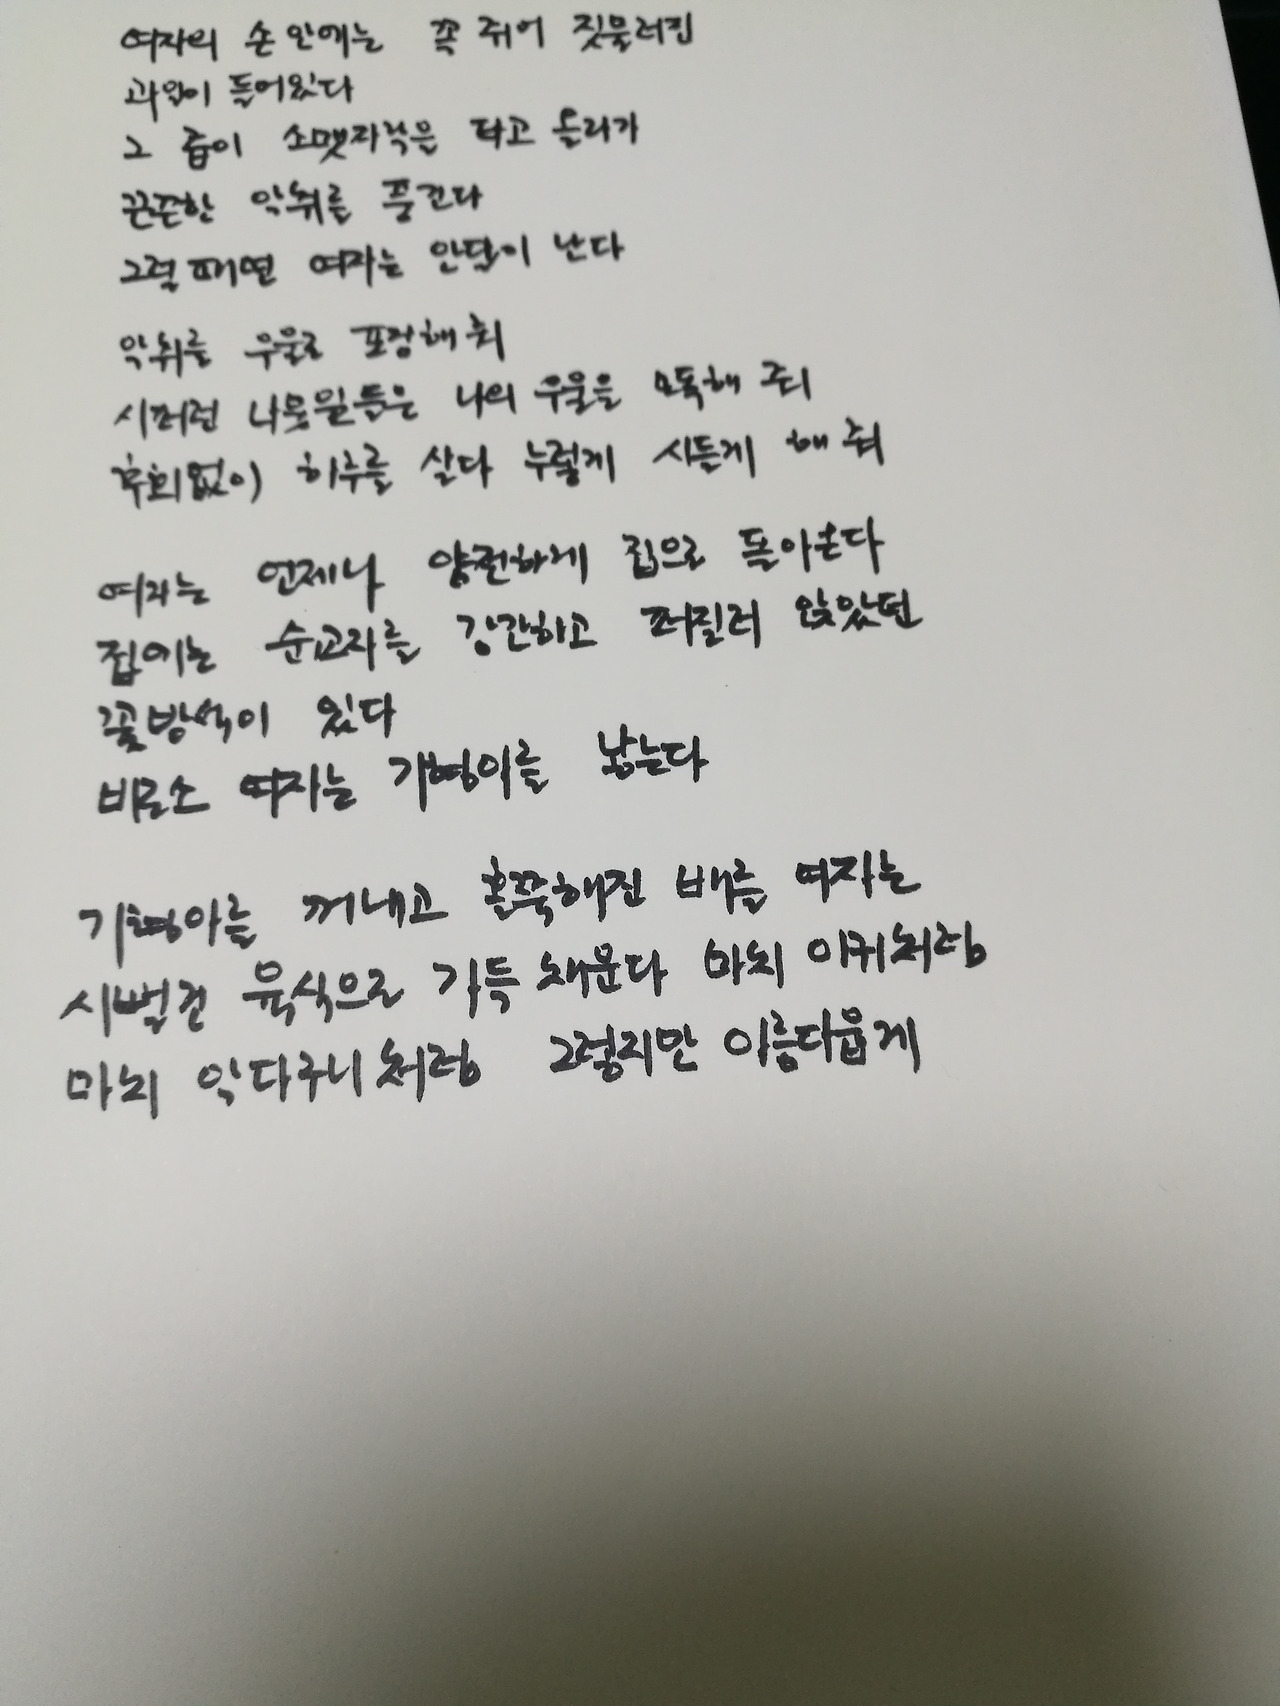 여자의 손 안에는 꼭 쥐어 짓물러진
과일이 들어있다
그 즙이 소맷자락을 타고 올라가
끈끈한 악취를 풍긴다
그럴 때면 여자는 안달이 난다
악취를 우울로 포장해 줘
시퍼런 나뭇잎들은 나의 우울을 모독해 줘
후회없이 하루를 살다 누렇게 시들게 해 줘
여자는 언제나 얌전하게 집으로 돌아온다
집에는 순교자를 강간하고 퍼질러 앉았던
꽃방석이 있다
비로소 여자는 기형아를 낳는다
기형아를 꺼내고 홀쭉해진 배를 여자는
시뻘건 육식으로 가득 채운다 마치 아귀처럼
마치 악다구니처럼 그렇지만 아름다웁게